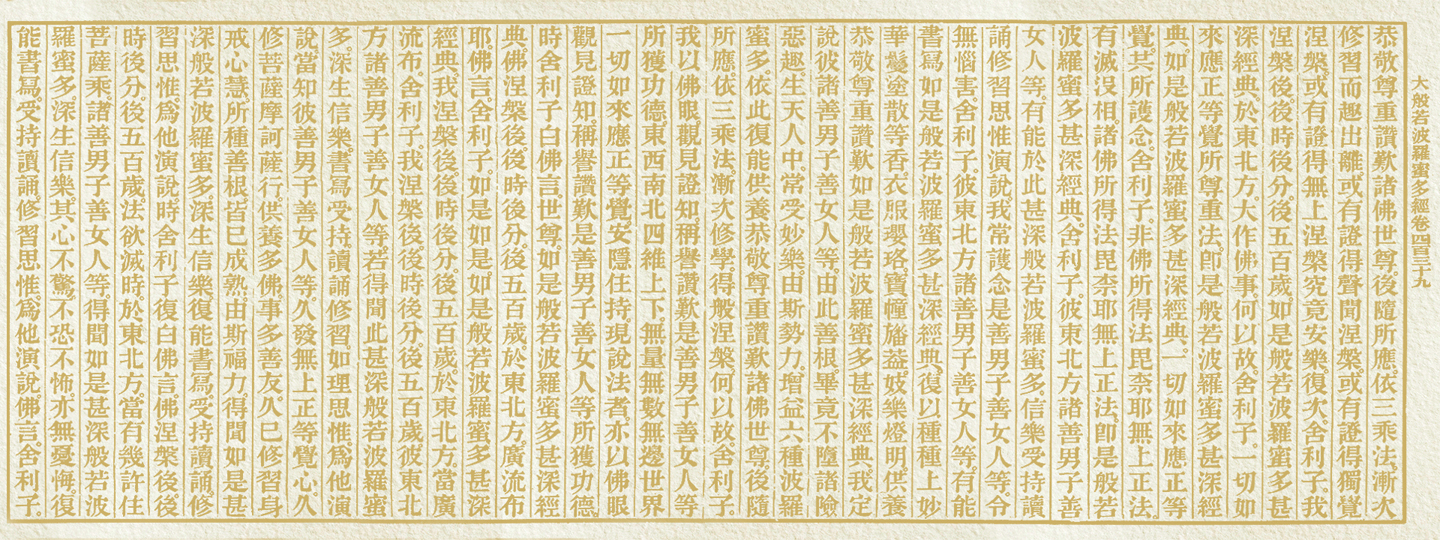 大般若波羅蜜多經卷四百三十九
恭敬尊重讚歎諸佛世尊。後隨所應。依三乘法。漸次
修習而趣出離。或有證得聲聞涅槃。或有證得獨覺
涅槃。或有證得無上涅槃究竟安樂。復次。舍利子。我
涅槃後。後時後分。後五百歲。如是般若波羅蜜多甚
深經典。於東北方。大作佛事。何以故。舍利子。一切如
來應正等覺所尊重法。卽是般若波羅蜜多甚深經
典。如是般若波羅蜜多甚深經典。一切如來應正等
覺。共所護念。舍利子。非佛所得法毘柰耶無上正法。
有滅沒相。諸佛所得法毘柰耶無上正法。卽是般若
波羅蜜多甚深經典。舍利子。彼東北方諸善男子善
女人等。有能於此甚深般若波羅蜜多。信樂受持讀
誦修習思惟演說。我常護念是善男子善女人等。令
無惱害。舍利子。彼東北方諸善男子善女人等。有能
書寫如是般若波羅蜜多甚深經典。復以種種上妙
華鬘塗散等香。衣服瓔珞。寶幢旛葢。妓樂燈明。供養
恭敬尊重讚歎如是般若波羅蜜多甚深經典。我定
說彼諸善男子善女人等。由此善根。畢竟不墮諸險
惡趣。生天人中。常受妙樂。由斯勢力。增益六種波羅
蜜多。依此復能供養恭敬尊重讚歎諸佛世尊。後隨
所應。依三乘法。漸次修學。得般涅槃。何以故。舍利子。
我以佛眼。觀見證知。稱譽讚歎是善男子善女人等
所獲功德。東西南北四維上下。無量無數無邊世界
一切如來應正等覺。安隱住持現說法者。亦以佛眼
觀見證知。稱譽讚歎是善男子善女人等所獲功德。
時舍利子白佛言。世尊。如是般若波羅蜜多甚深經
典。佛涅槃後。後時後分。後五百歲。於東北方。廣流布
耶。佛言。舍利子。如是如是。如是般若波羅蜜多甚深
經典。我涅槃後。後時後分。後五百歲。於東北方。當廣
流布。舍利子。我涅槃後。後時後分。後五百歲。彼東北
方。諸善男子善女人等。若得聞此甚深般若波羅蜜
多。深生信樂。書寫受持。讀誦修習。如理思惟。爲他演
說。當知彼善男子善女人等。久發無上正等覺心。久
修菩薩摩訶薩行。供養多佛。事多善友。久已修習身
戒心慧。所種善根。皆已成熟。由斯福力。得聞如是甚
深般若波羅蜜多。深生信樂。復能書寫。受持讀誦。修
習思惟。爲他演說。時舍利子復白佛言。佛涅槃後。後
時後分。後五百歲。法欲滅時。於東北方。當有幾許住
菩薩乘諸善男子善女人等。得聞如是甚深般若波
羅蜜多。深生信樂。其心不驚。不恐不怖。亦無憂悔。復
能書寫。受持讀誦。修習思惟。爲他演說。佛言。舍利子。